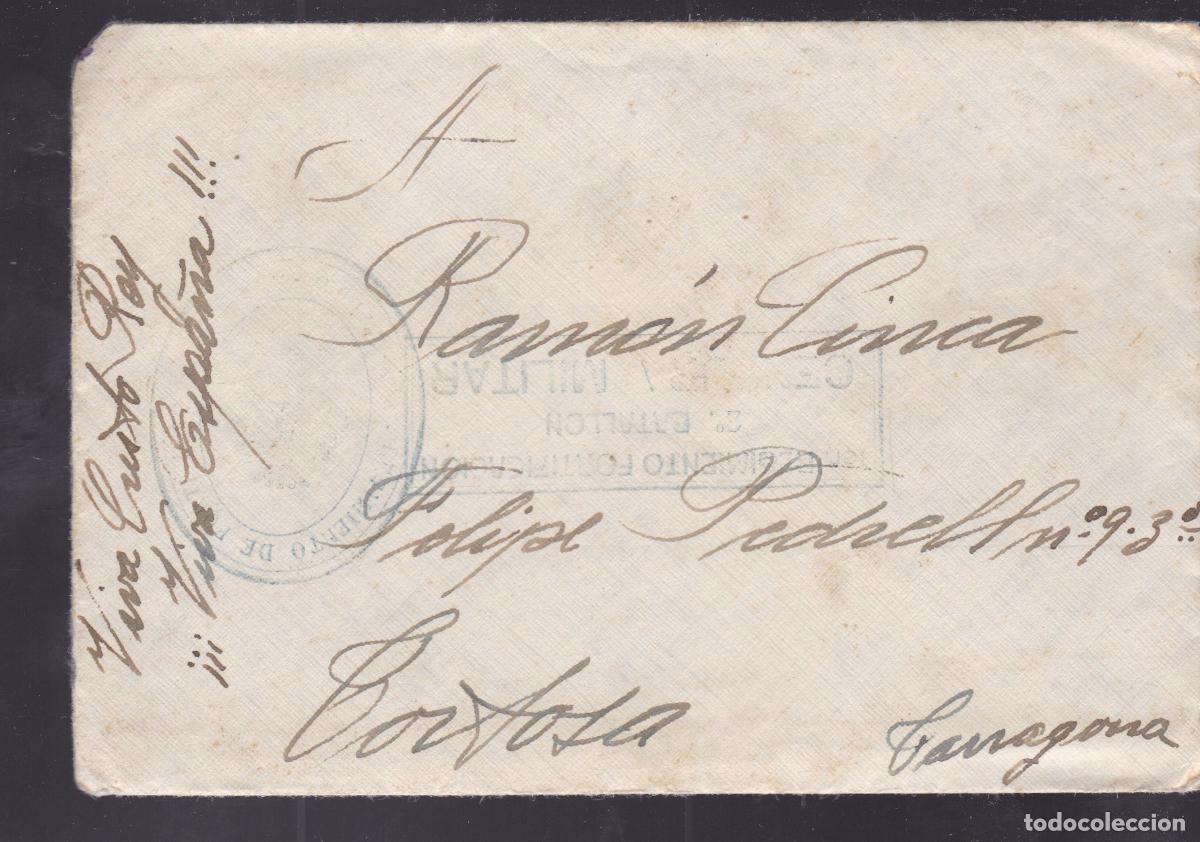 A
Ramón Cinca
Felipe Pedrell nº 9-3º
Tortosa
Tarragona
Viva Cristo Rey
¡¡¡ Viva España !!!
REGIMIENTO FORTIFICACION
2º BATALLON
MILITAR
MIENTO DE
todocoleccion